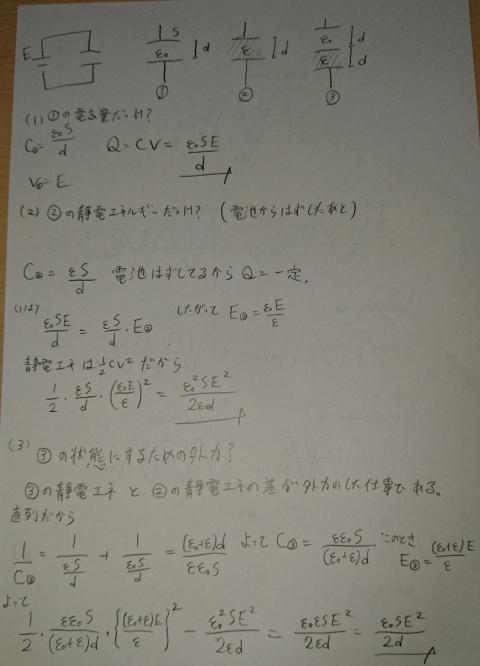 E S ε₀ d ε d ε₀ d ε d
① ② ③
(1) ①の電気量だっけ?
C₀=ε₀S/d Q=CV=ε₀SE/d
V₀=E
(2) ②の静電エネルギーだっけ? (電池からはずしたあと)
C②=εS/d 電池はずしてるからQ=一定.
(1)より ε₀SE/d=εS/d・E② したがって E②=ε₀E/ε
静電エネは½CV²だから
1/2・εS/d・(ε₀E/ε)²=ε₀²SE²/2εd
(3) ③の状態にするための外力?
③の静電エネと②の静電エネの差が外力のした仕事である。
直列だから
1/C③=1/(εS/d)+1/(ε₀S/d)=(ε₀+ε)d/εε₀S よって C③=εε₀S/(ε₀+ε)d このとき E③=(ε₀+ε)E/ε
よって
1/2・εε₀S/(ε₀+ε)d・{(ε₀+ε)E/ε}²-ε₀²SE²/2εd=ε₀εSE²/2εd=ε₀SE²/2d